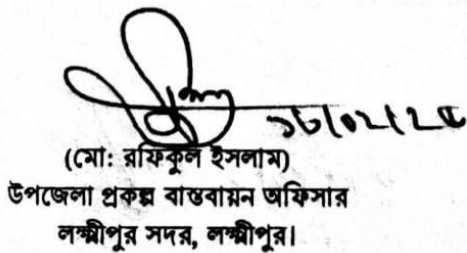 (মো: রফিকুল ইসলাম)
উপজেলা প্রকল্প বাস্তবায়ন অফিসার
লক্ষ্মীপুর সদর, লক্ষ্মীপুর।